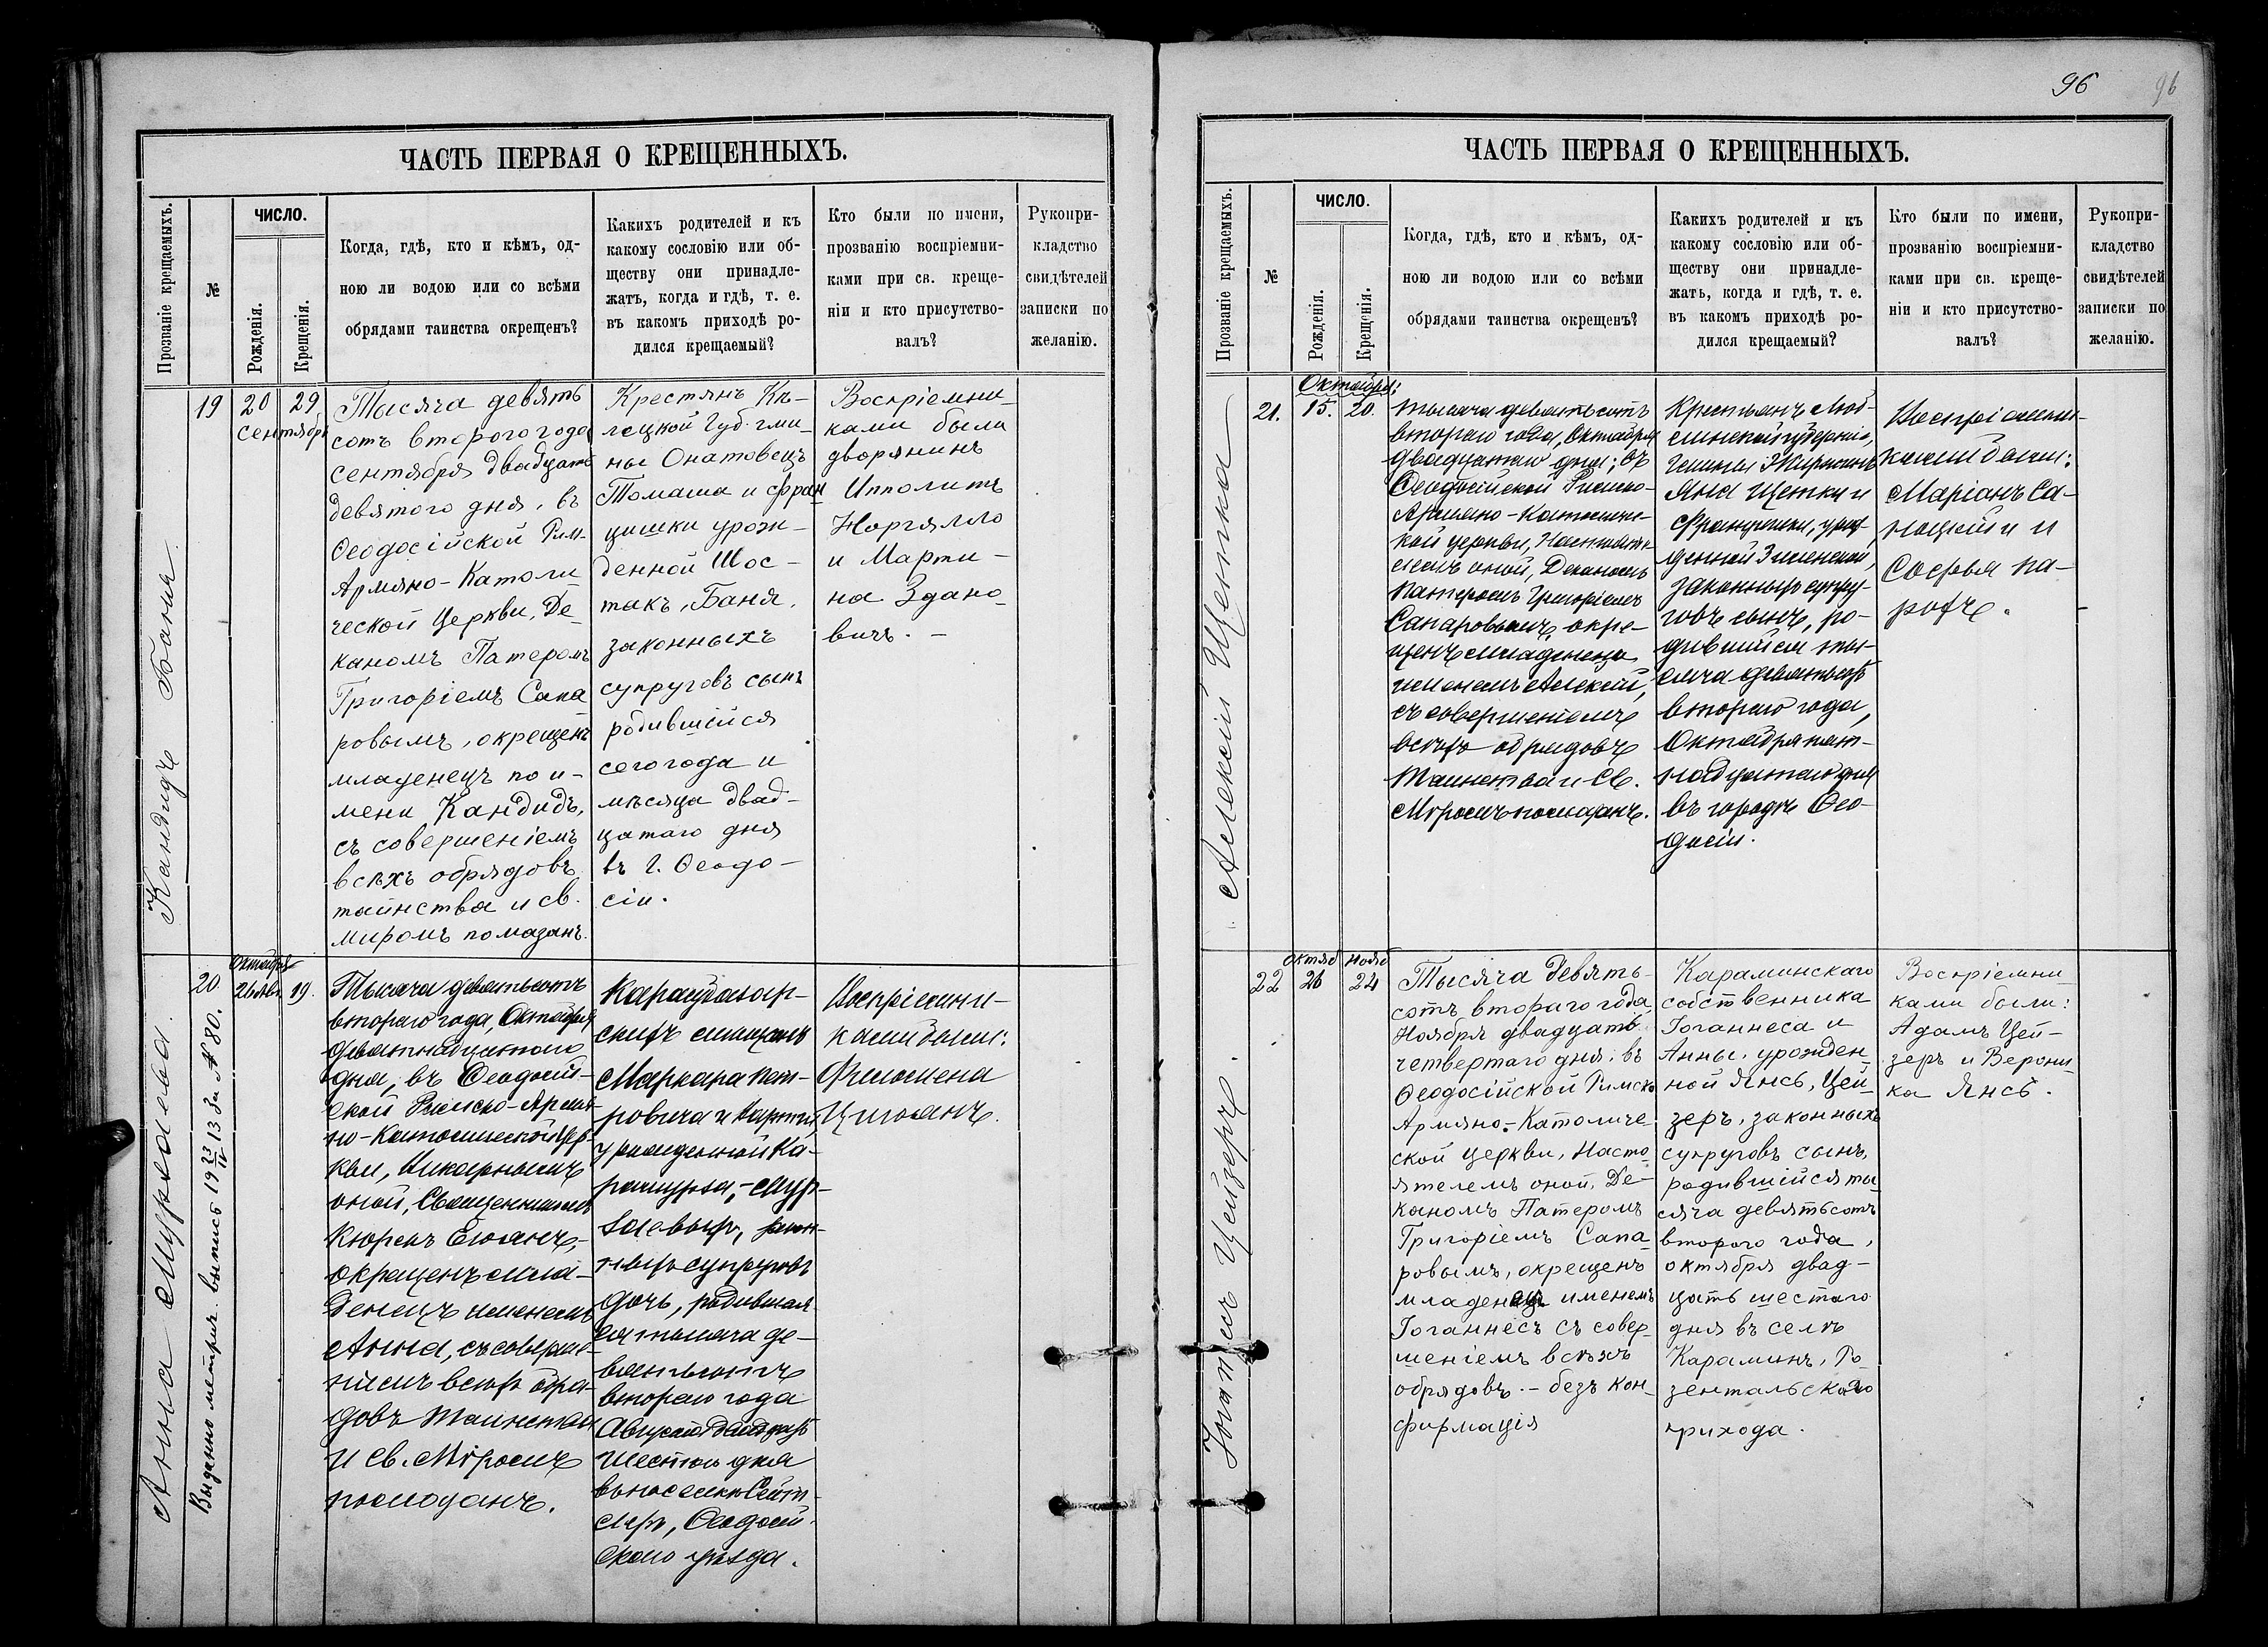 ЧАСТЬ ПЕРВАЯ О КРЕЩЕННЫХЪ.
Прозваніе крещаемыхъ.
№
ЧИСЛО.
Рожденія.
Крещенія.
Когда, гдѣ, кто и кѣмъ, од-
ною ли водою или со всѣми
обрядами таинства окрещенъ?
Какихъ родителей и къ
какому сословію или об-
ществу они принадле-
жатъ, когда и гдѣ, т. е.
въ какомъ приходѣ ро-
дился крещаемый?
Кто были по имени,
прозванію воспріемни-
ками при св. креще-
ніи и кто присутство-
валъ?
Рукопри-
кладство
свидѣтелей
записки по
желанію.
Кандидъ Баня
19
20
29
сентября
Тысяча девять
сотъ второго года
сентября двадцать
девятого дня, въ
Ѳеодосійской Рим-
Армяно-Католи
ческой Церкви, Де-
каномъ Патеромъ
Григоріемъ Сапа
ровымъ, окрещенъ
младенецъ по и-
мени Кандидъ,
съ совершеніемъ
всѣхъ обрядовъ
таинства и св.
миромъ помазанъ.
Крестянъ Кѣ-
лецкой Губ. гми-
ны
Томаша и Фран
цишки урож-
денной Шос-
такъ, Баня,
законныхъ
супруговъ сынъ
родившійся
сего года и
мѣсяца двад-
цатаго дня
въ г. Ѳеодо-
сіи.
Воспріемни-
ками были
дворянинъ
Ипполитъ
Норгялло
и Марти-
на Здано-
вичъ. -
Анна Мурзаева.
Выданно метрич. выпись 19 23/IV 13 За № 80.
20
Октября
26 Авг.
19.
Тысяча девятьсотъ
второго года, Октября
девятнадцатого
дня, въ Ѳеодосій-
ской Римско-Армя-
но-Католической Цер-
кви, Викарнымъ
оной, Священникомъ
окрещенъ мла-
денецъ именемъ
Анна, съ соверше-
ніемъ всѣхъ обря-
довъ Таинства
и св. Мѵромъ
помазанъ.
Карасубазар-
скихъ мѣщанъ
Маркара Пет-
ровича и
урожденной Ка-
рашурза,-Мур-
заевыхъ, закон-
ныхъ супруговъ
дочь, родившая-
ся тысяча де-
вятьсотъ
второго года
Августа двадцать
шестого дня
въ поселкѣ Сейт-
леръ, Ѳеодосій-
скаго уѣзда.
Воспріемни-
ками были:
Филомена
96
96
ЧАСТЬ ПЕРВАЯ О КРЕЩЕННЫХЪ.
Прозваніе крещаемыхъ.
№
ЧИСЛО.
Рожденія.
Крещенія.
Когда, гдѣ, кто и кѣмъ, од-
ною ли водою или со всѣми
обрядами таинства окрещенъ?
Какихъ родителей и къ
какому сословію или об-
ществу они принадле-
жатъ, когда и гдѣ, т. е.
въ какомъ приходѣ ро-
дился крещаемый?
Кто были по имени,
прозванію воспріемни-
ками при св. креще-
ніи и кто присутство-
валъ?
Рукопри-
кладство
свидѣтелей
записки по
желанію.
Алексій Щетка
21.
Октября:
15.
20.
Тысяча девятьсотъ
второго года, Октября
двадцатаго дня; въ
Ѳеодосійской Римско-
Армяно-Католичес-
кой церкви, Настояте-
лемъ оной, Деканомъ
Патеромъ Григоріемъ
Сапаровымъ, окре-
щенъ младенецъ
именемъ Алексій,
съ совершеніемъ
всѣхъ обрядовъ
Таинства и Св.
Мѵромъ помазанъ.
Крестьянъ Люб-
линской губерніи,
Гмины
Яна Щетки и
Францишки, урож-
денной
законныхъ супру-
говъ сынъ, ро-
дившійся ты-
сяча девятьсотъ
второго года,
Октября пят-
надцатаго дня
въ городѣ Ѳео-
досіи.
Воспріемни-
ками были:
Маріанъ Са-
и
Софья
Іоганнесъ Цейзеръ.
22
Октяб
26
Нояб
24
Тысяча девять-
сотъ второго года,
Ноября двадцать
четвертаго дня, въ
Ѳеодосійской Римско
Армяно-Католиче-
ской церкви, Насто-
ятелемъ оной, Де-
каномъ Патеромъ
Григоріемъ Сапа-
ровымъ, окрещенъ
младенецъ именемъ
Іоганнесъ съ совер-
шеніемъ всѣхъ
обрядовъ.-безъ кон-
фирмація
Караминскаго
собственника
Іоганнеса и
Анны, урожден-
ной Янсъ, Цей-
зеръ, законныхъ
супруговъ сынъ,
родившійся ты-
сяча девятьсотъ
второго года,
октября двад-
цать шестаго
дня въ селѣ
Караминъ, Ро-
зентальскаго
прихода.
Воспріемни-
ками были:
Адамъ Цей-
зеръ и Верони-
ка Янсъ.